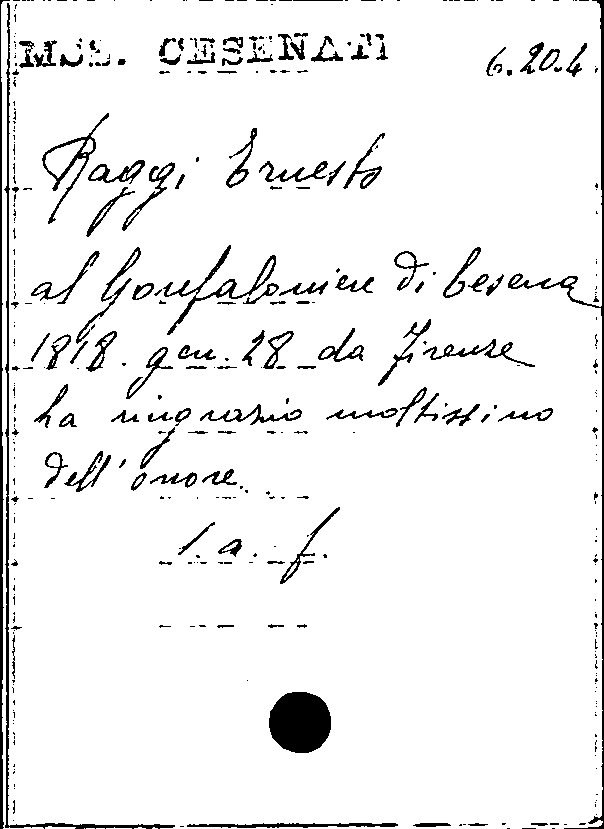 MSS. CESENATI
6.20.4.
Raggi Ernesto
al Gonfaloniere di Cesena
1818. gen. 28 da Firenze
ha ringrazio moltissimo
dell'onore.
l. a. f.